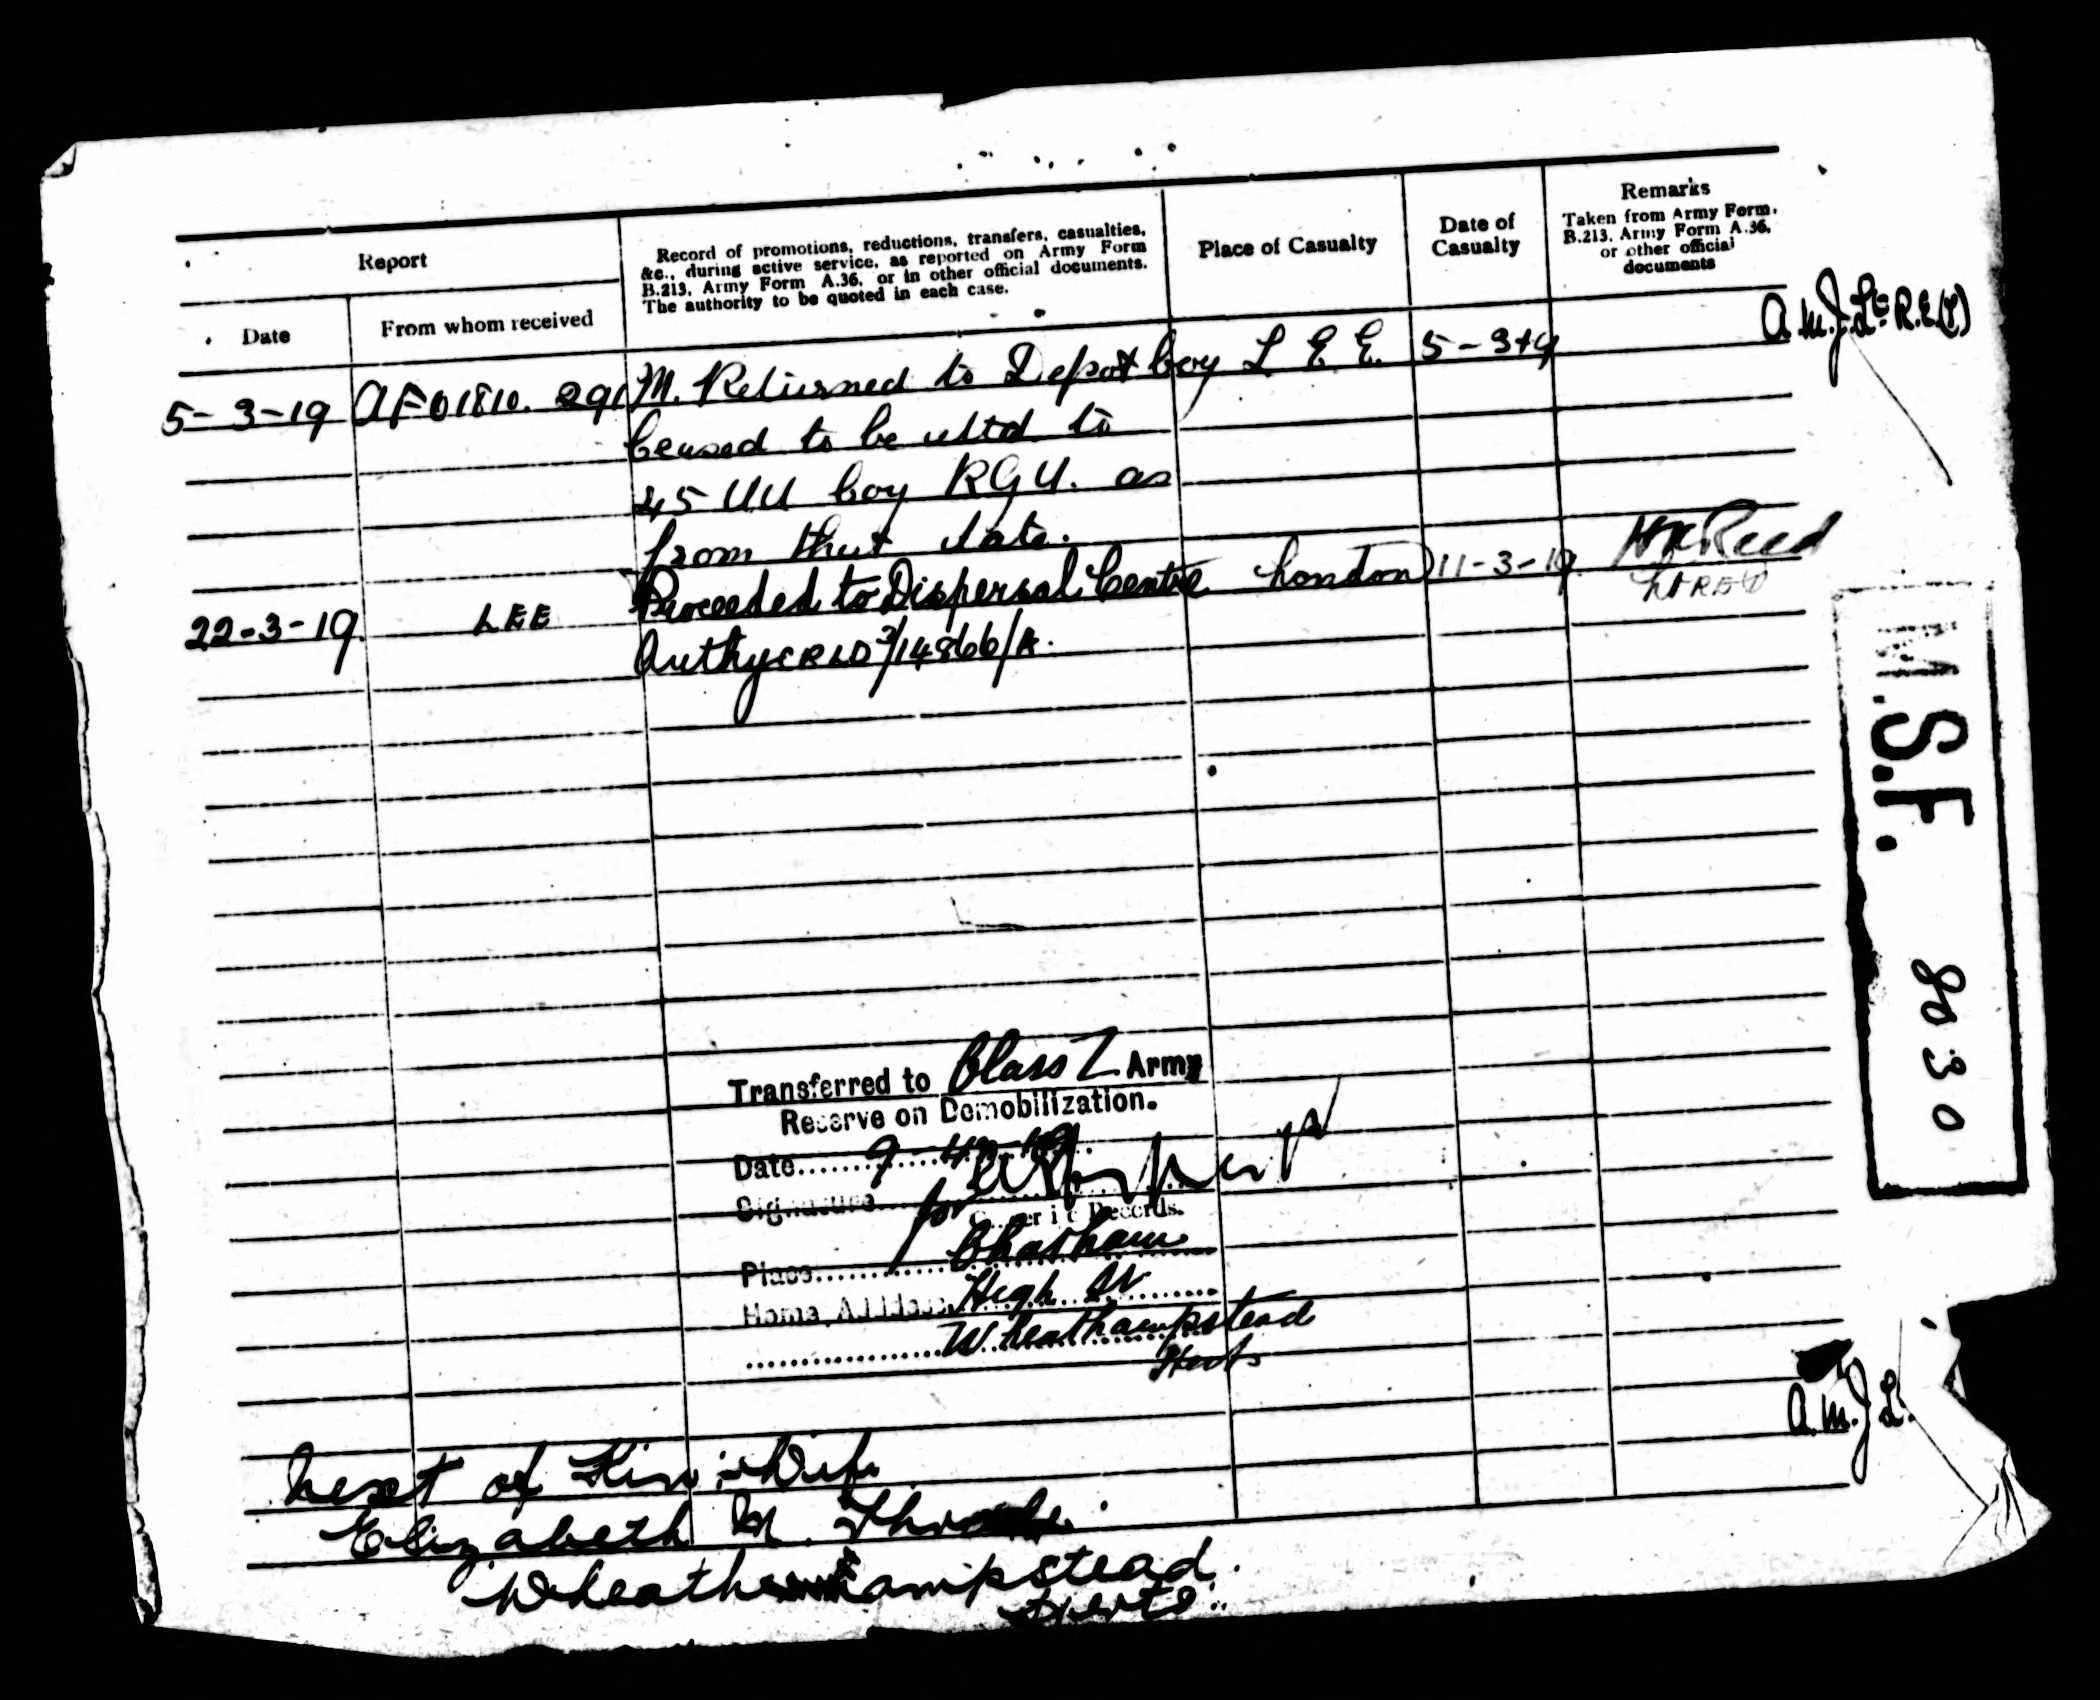 Report
Date
From whom received
Record of promotions, reductions, transfers, casualties,
&c., during active service, as reported on Army Form
B.213, Army Form A.36, or in other official documents.
The authority to be quoted in each case.
Place of Casualty
Date of
Casualty
Remarks
Taken from Army Form.
B.213, Army Form A.36,
or other official
documents
5-3-19 AFO1810. 291 M. Returned to Depot Coy L E E. 5-3-19
A.M.J. Lt R.E.(T)
Ceased to be attd to
45 UU Coy RGU. as
from that date.
22-3-19 LEE Proceeded to Dispersal Centre London 11-3-19 Reed
Lt RE
Authy CRLD 3/14866/A.
M.S.F. 8030
Transferred to Class Z Army
Reserve on Demobilization.
Date 9 4 19
Signature for
Records.
Place Chatham
Home Address High St
Wheathampstead
Herts
A.M.J. Lt.
Next of Kin:- Wife
Elizabeth M.
Wheathampstead.
Herts.